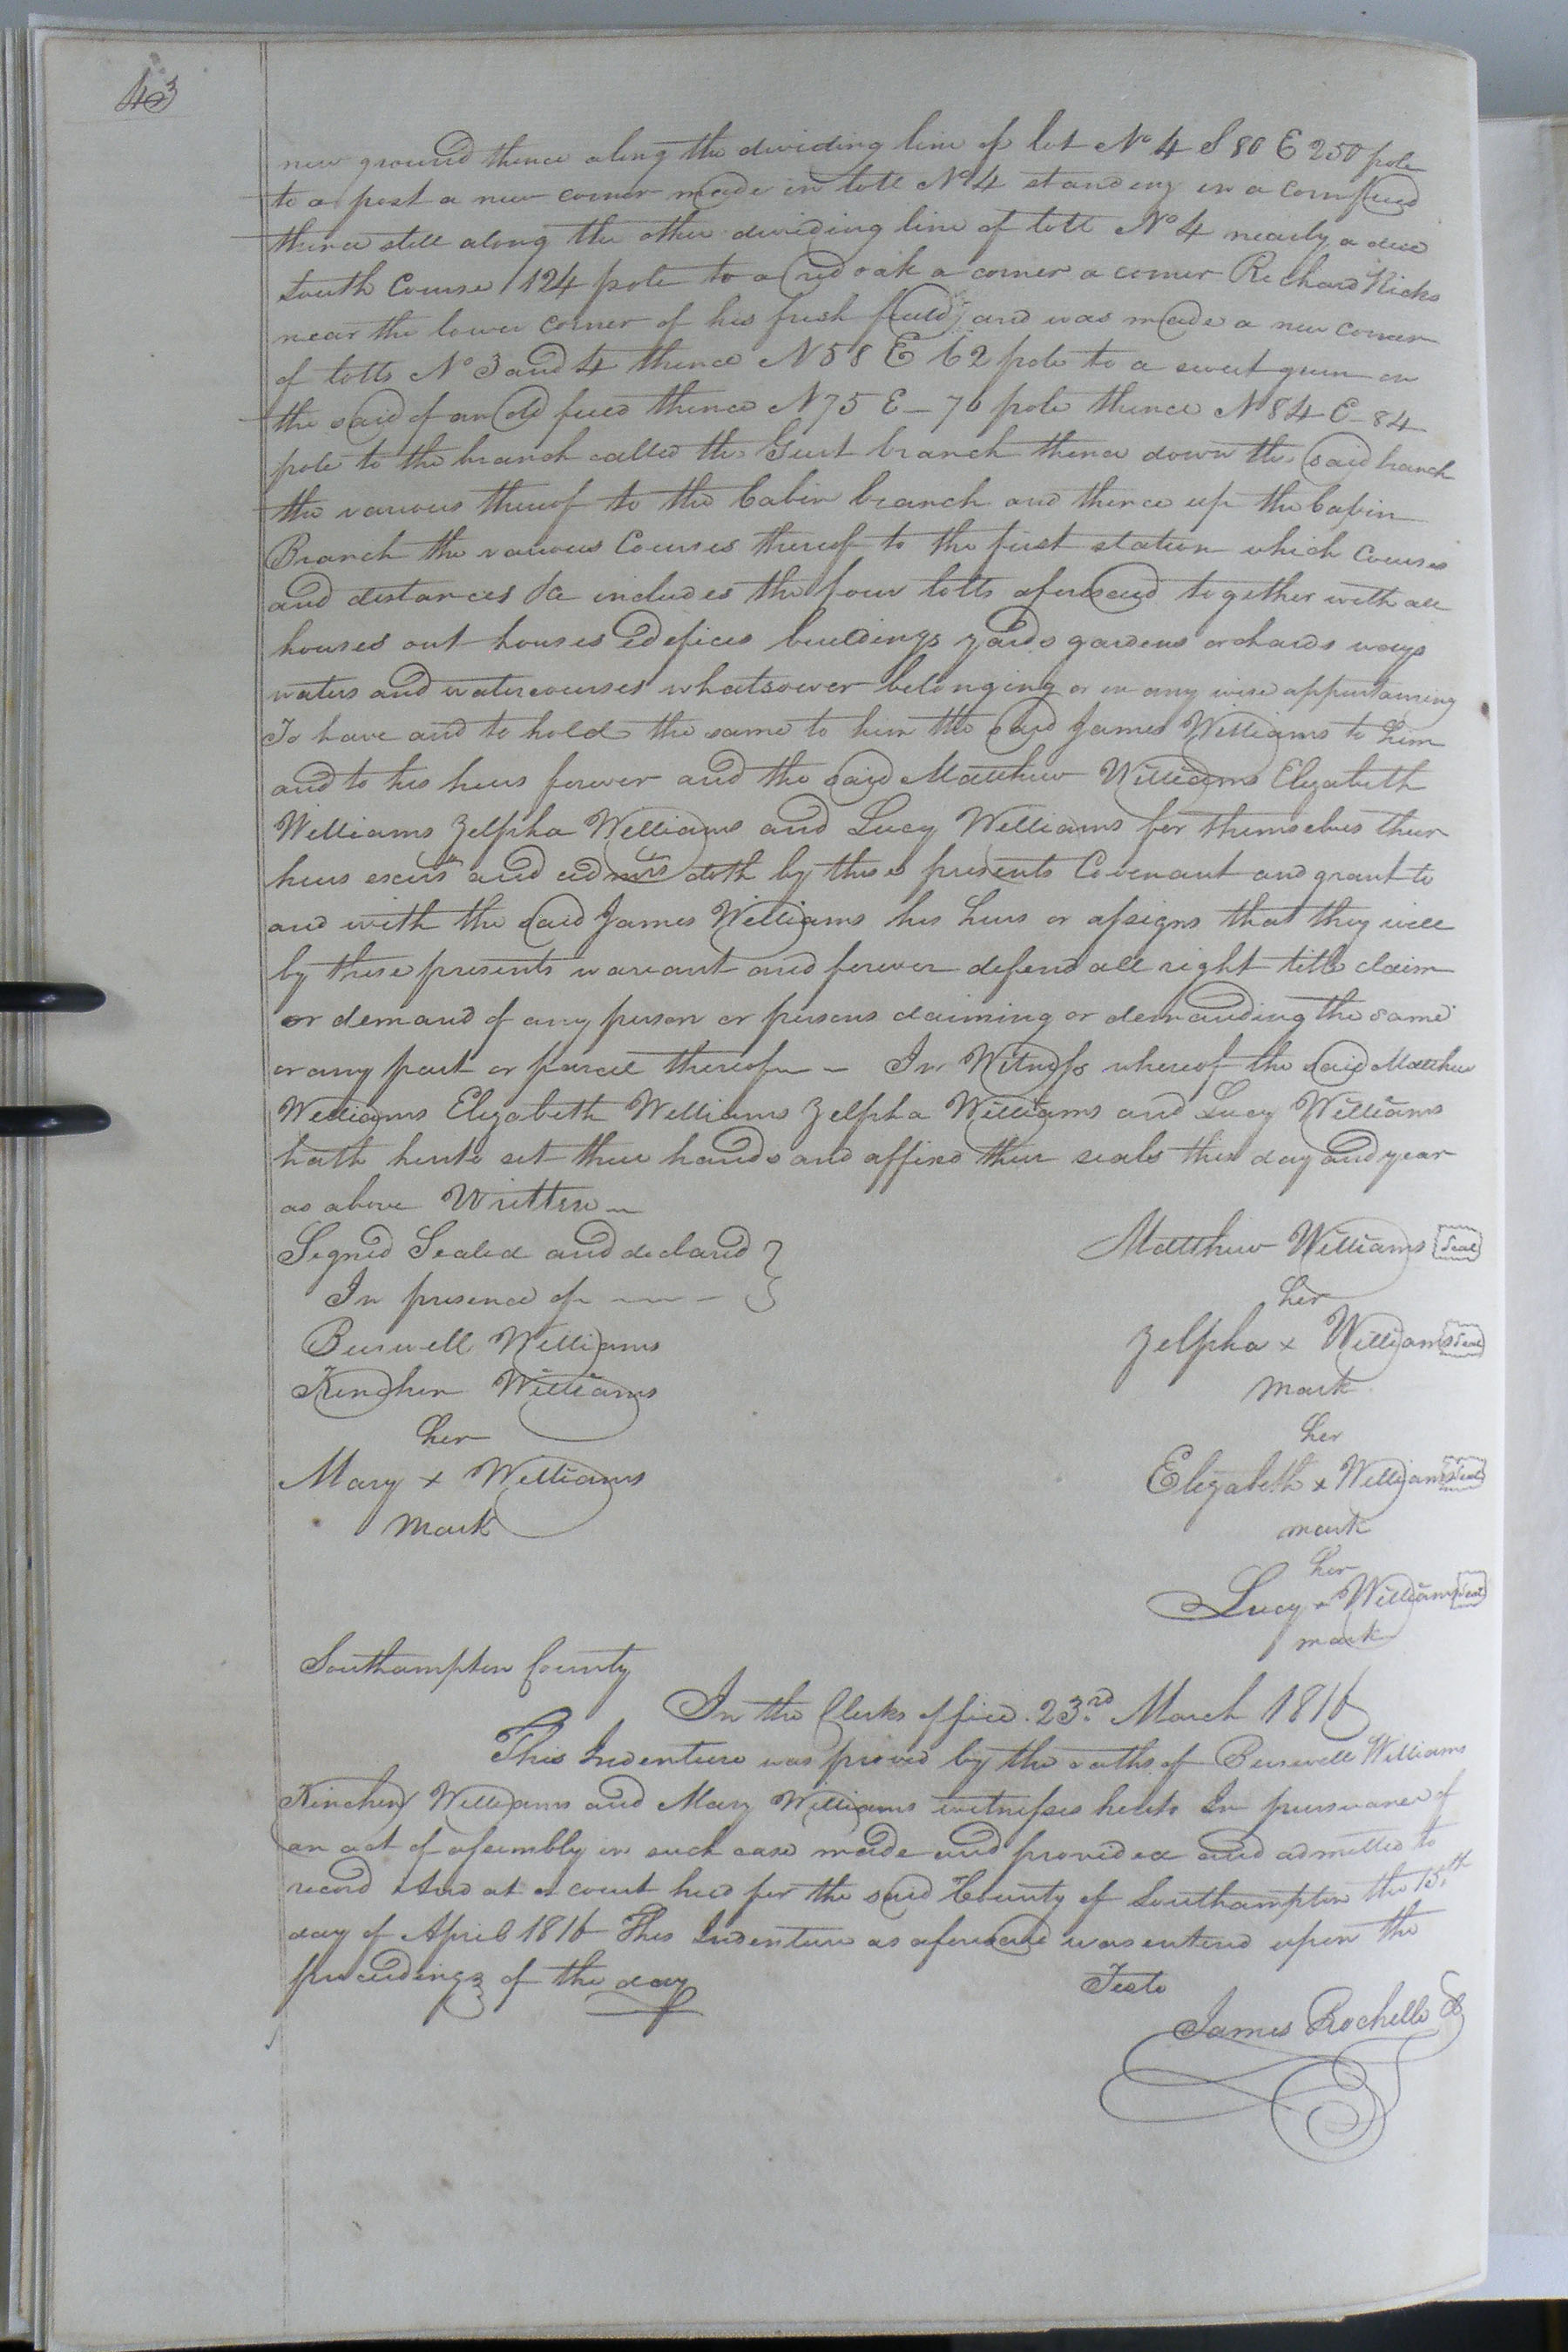 43
new ground thence along the dividing line of lot No 4 S 80 E 250 pole
to a post a new corner made in lott No 4 standing in a cornfield
thence still along the other dividing line of lott No 4 nearly a due
South Course 124 pole to a red oak a corner a corner Richard Ricks
near the lower corner of his fresh field and was made a new corner
of lotts No 3 and 4 thence N 58 E 62 pole to a sweet gum on
the said of an old field thence N 75 E - 76 pole thence N 84 E - 84
pole to the branch called the Gut branch thence down the said branch
the various thereof to the Cabin branch and thence up the Cabin
Branch the various Courses thereof to the first station which Courses
and distances &c includes the four lotts aforesaid together with all
houses out houses Edefices buildings yards gardens orchards ways
waters and watercourses whatsoever belonging or in any wise appurtaining
To have and to hold the same to him the said James Williams to him
and to his heirs forever and the said Matthew Williams Elizabeth
Williams Zelpha Williams and Lucy Williams for themselves their
heirs excrs and admrs doth by these presents Covenant and grant to
and with the said James Williams his heirs or assigns that they will
by these presents warrant and forever defend all right title claim
or demand of any person or persons claiming or demanding the same
or any part or parcel thereof - In Witness whereof the said Matthew
Williams Elizabeth Williams Zelpha Williams and Lucy Williams
hath hereto set their hands and affixed their seals this day and year
as above Written
Signed Sealed and declared }
In presence of
Matthew Williams Seal
Burwell Williams
her
Zelpha x Williams Seal
mark
Kinchen Williams
her
Mary x Williams
mark
her
Elizabeth x Williams Seal
mark
her
Lucy x Williams Seal
mark
Southampton County
In the Clerks office. 23rd March 1816
This Indenture was proved by the oaths of Burwell Williams
Kinchen Williams and Mary Williams witnesses hereto In pursuance of
an act of assembly in such case made and provided and admitted to
record And at a court held for the said County of Southampton the 15th
day of April 1816 This Indenture as aforesaid was entered upon the
proceedings of the day
Teste
James Rochelle